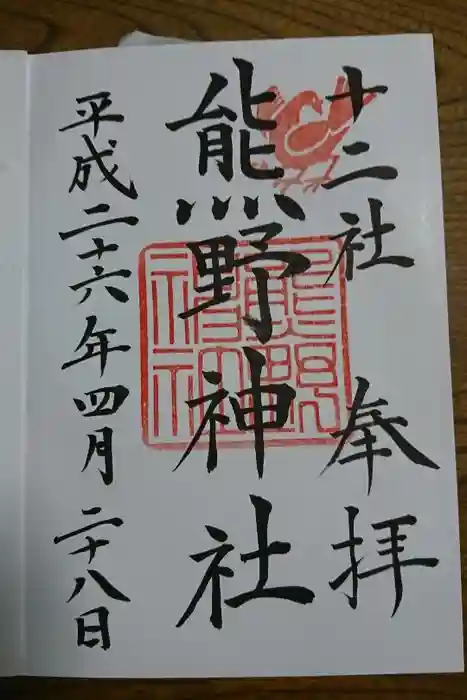 十二社 奉拝
熊野神社
平成二十六年四月二十八日
熊野神社